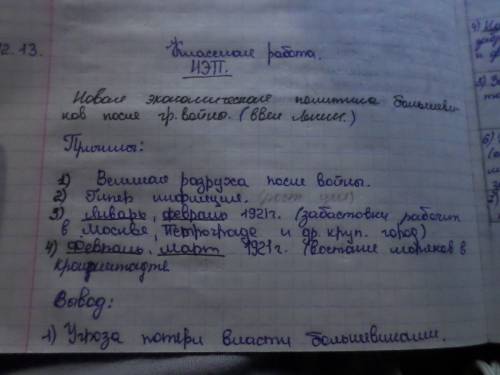 2. 13.
Классная работа.
НЭП.
Новая экономическая политика большеви-
ков после гр. войны. (ввел Ленин.)
Причины:
1) Великая разруха после войны.
2) Гипер инфляция. (рост цен)
3) Январь, февраль 1921г. (забастовки рабочих
в Москве, Петрограде и др. круп. город)
4) Февраль, март 1921г. (восстание моряков в
Кронштадте
Вывод:
1) Угроза потери власти большевиками.